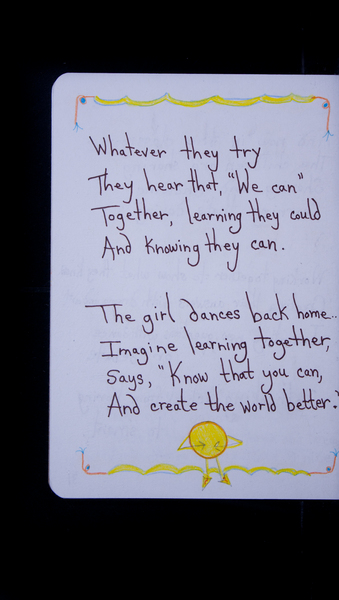 Whatever they try
They hear that, "We can"
Together, learning they could
And Knowing they can.
The girl dances back home..
Imagine learning together,
Says, "Know that you can,
And create the world better."